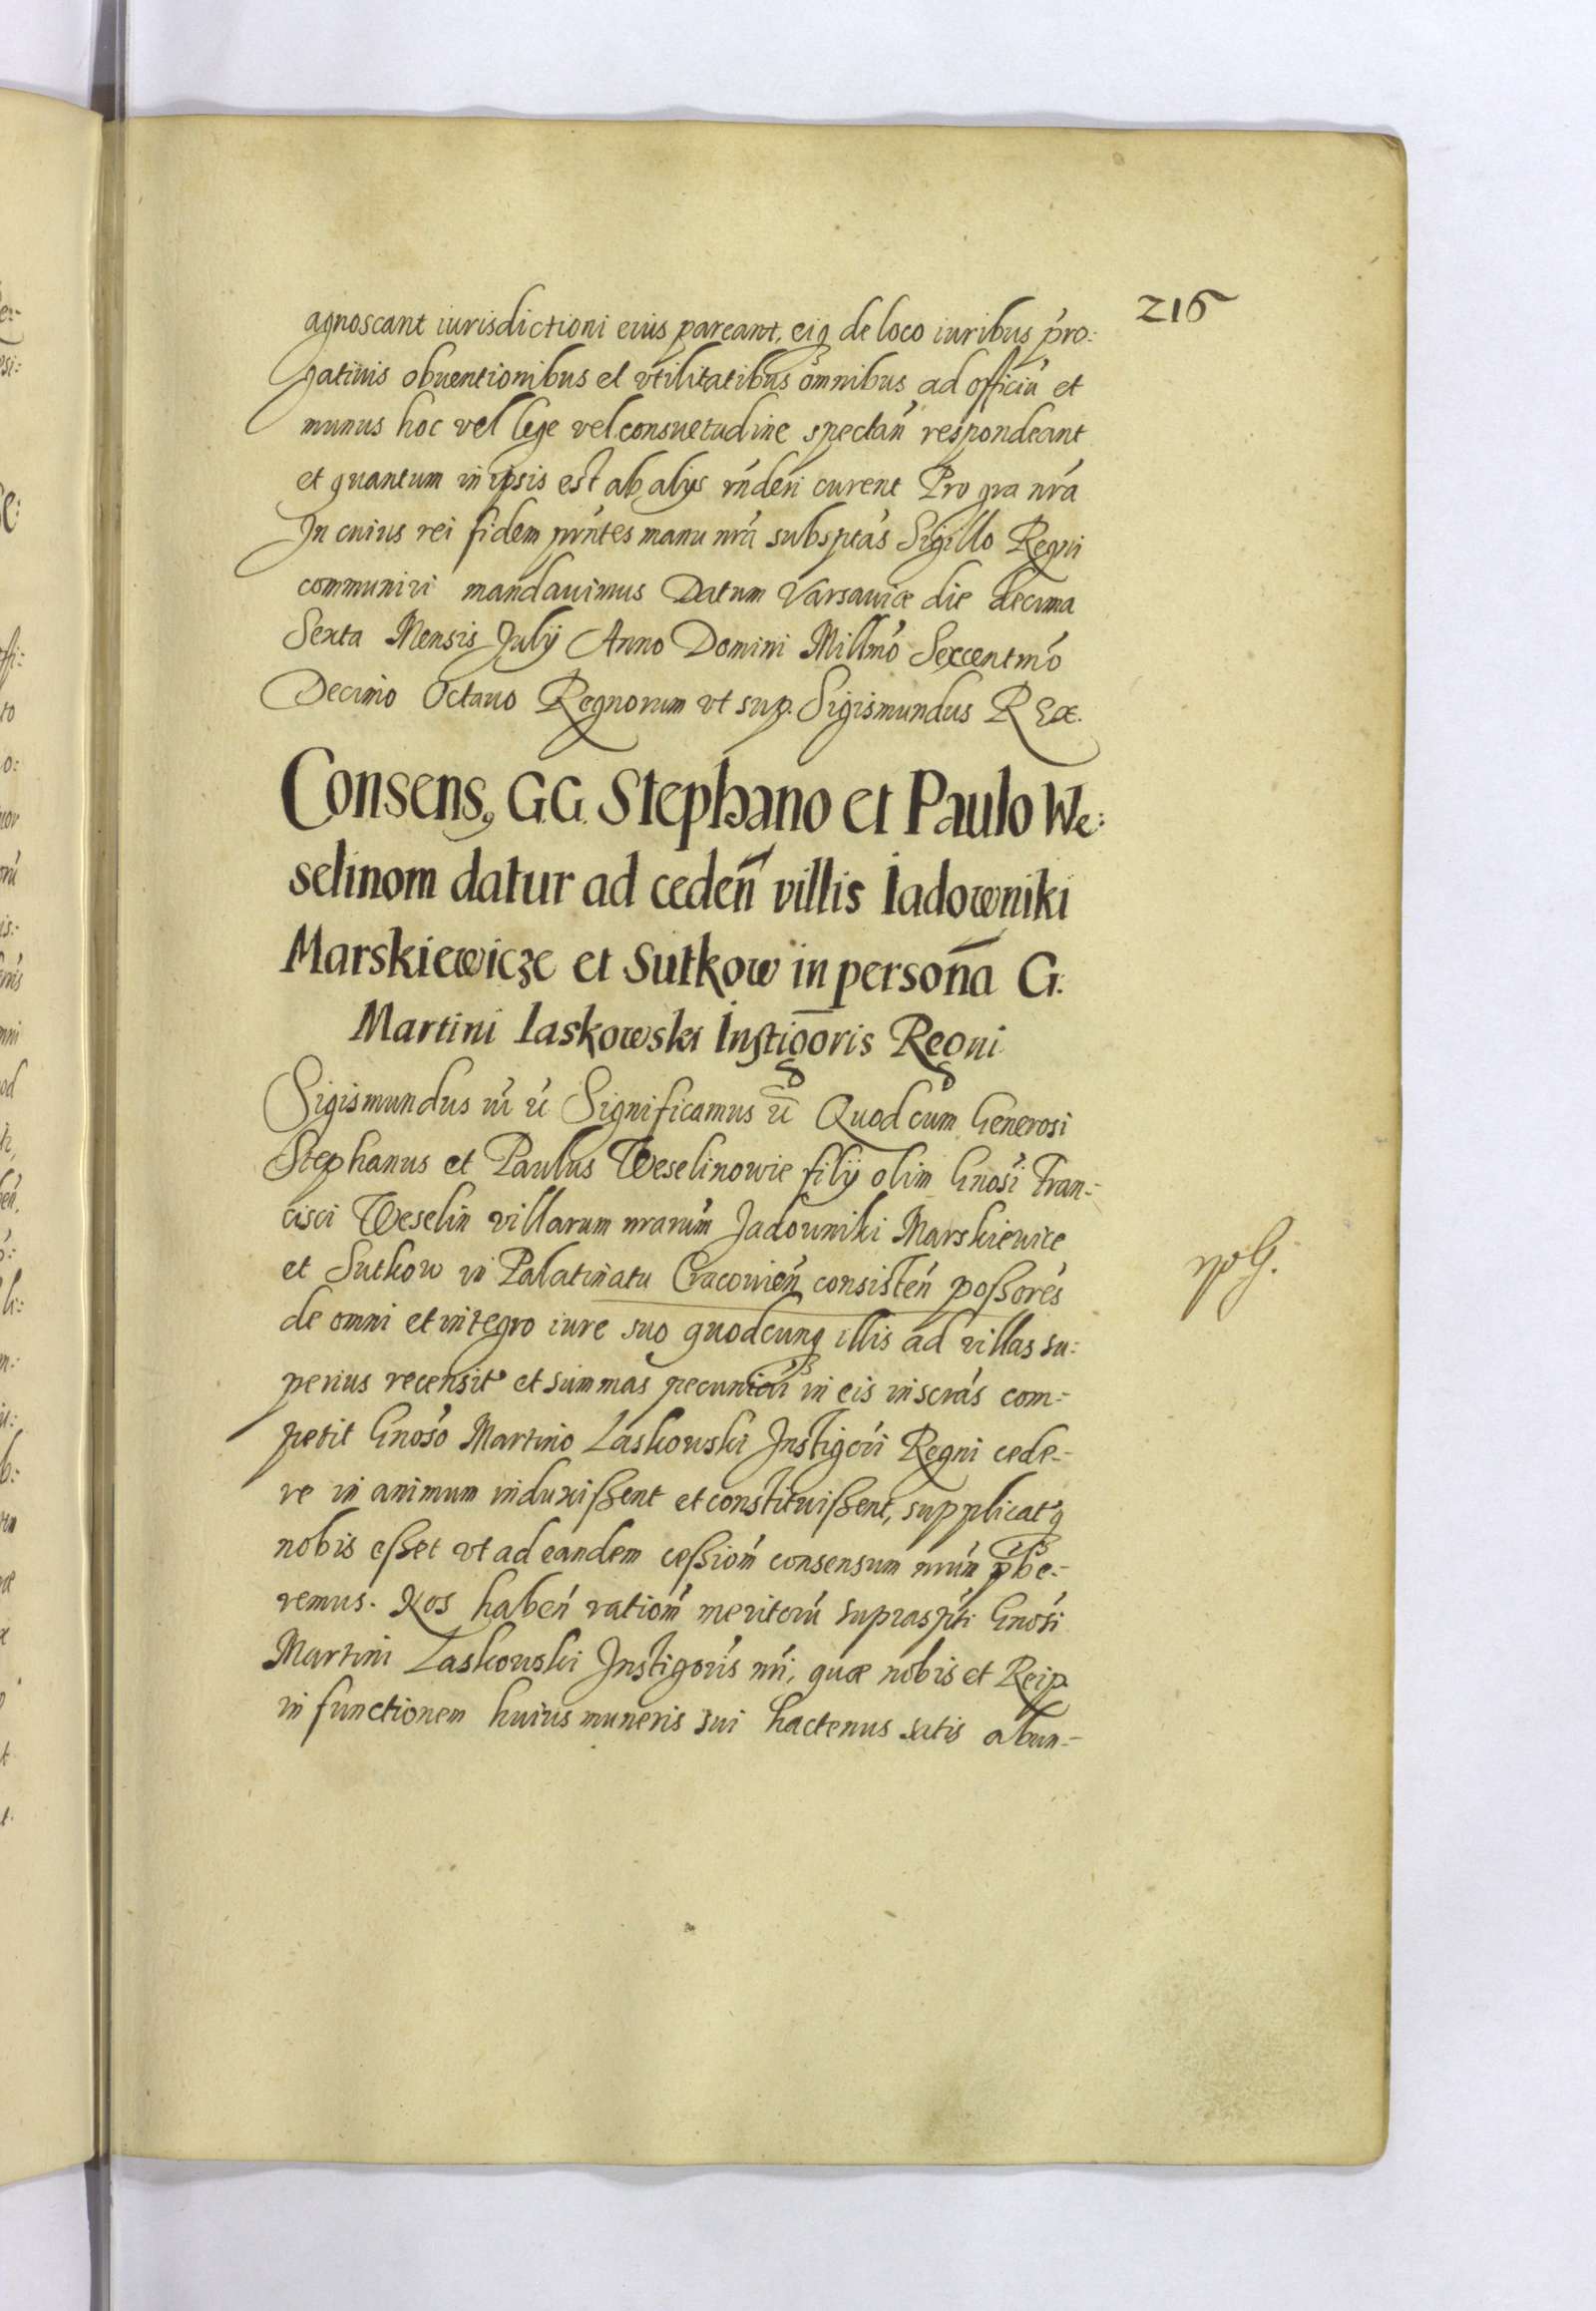 216
agnoscant iurisdictioni eius pareant, eiq de loco iuribus pro:
gatiuis obuentionibus et vtilitatibus omnibus ad officiú et
munus hoc vel lege vel consuetudine spectań respondeant
et quantum in ipsis est ab alijs rńderi curent Pro gra nrá
In cuius rei fidem prńtes manu nrá subsptás Sigillo Regni
communiri mandauimus Datum Varsauiæ die decima
Sexta Mensis Julij Anno Domini Millmó Sexcentmó
Decimo Octauo Regnorum vt sup. Sigismundus REX.
Consens9 G.G. Stephano et Paulo We:
selinom datur ad cedeń villis Iadowniki
Marskiewicze et Sutkow in persona G.
Martini Laskowski Instigoris Regni
Sigismundus Significamus Quod cum Generosi
Stephanus et Paulus Weselinowie filij olim Gnosi Fran:
cisci Weselin villarum nrarum Jadowniki Marskiewice
et Sutkow in Palatinatu Cracouień consisteń poßorés
de omni et integro iure suo quodcunq illis ad villas su:
perius recensit et summas pecuniar in eis inscrás com:
petit Gnoso Martino Laskowski Instigori Regni cede:
re in animum induxißent et constituißent, supplicatq
nobis eßet vt ad eandem ceßiom consensum nrum pbe:
remus. Nos habeń ratiom meritorú suprasp̃ti Gnosi
Martini Laskowski Instigoris nri, quæ nobis et Reip.
in functionem huius muneris sui hactenus satis abun: